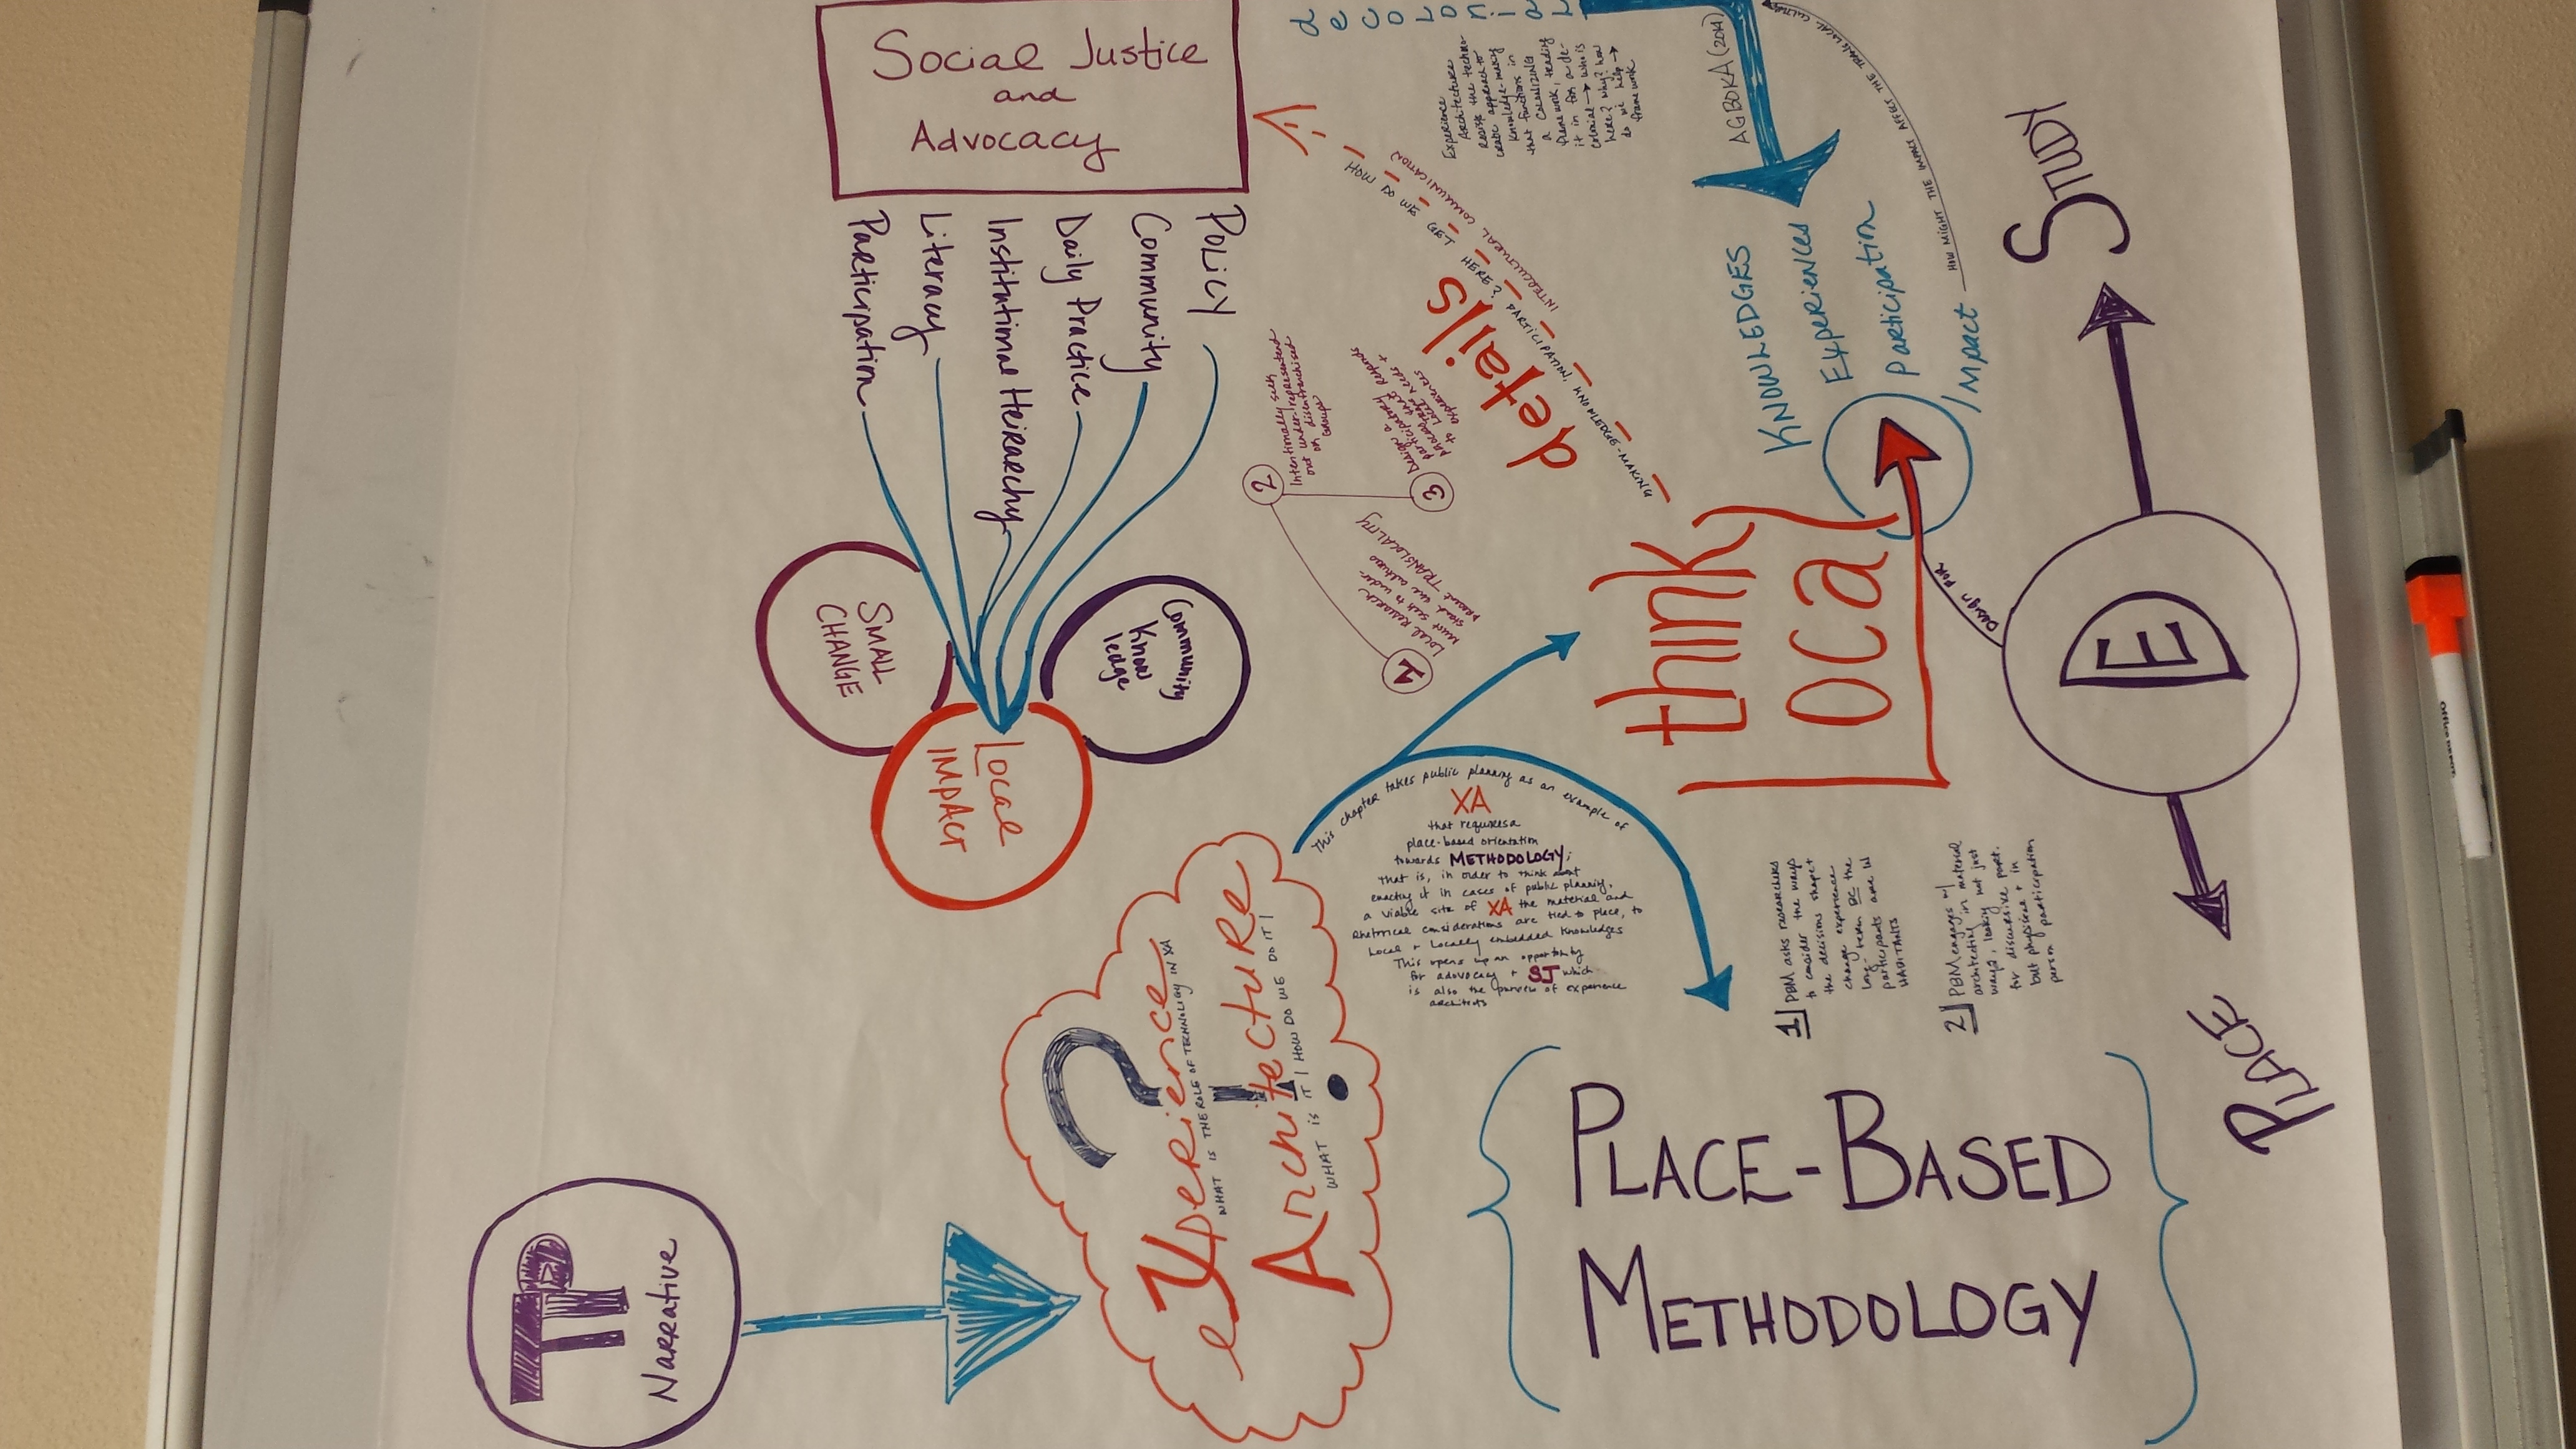 Social Justice
and
Advocacy
Policy
Community
Daily Practice
Institutional Heirarchy
Literacy
Participation
SMALL
CHANGE
Community
Know
ledge
Local
IMPACT
TP
Narrative
eXperience
WHAT IS THE ROLE OF TECHNOLOGY IN XA
Architecture
WHAT IS IT | HOW DO WE DO IT |
?
This chapter takes public planning as an example of
XA
that requires a
place-based orientation
towards METHODOLOGY;
that is, in order to think about
enacting it in cases of public planning,
a viable site of XA the material and
rhetorical considerations are tied to place, to
local + locally embedded knowledges
This opens up an opportunity
for adovocacy + SJ which
is also the purview of experience
architects
PLACE-BASED
METHODOLOGY
1] PBM asks researchers
to consider the ways
the decisions shape +
change experience
long-term BC the
participants are
HABITANTS
2] PBM engages w/
architecting in material
ways, looking not just
for discursive part.
but physical + in
person participation
think
local
details
HOW DO WE GET HERE? PARTICIPATION, KNOWLEDGE-MAKING
INTERCULTURAL COMMUNICATION
1
Local Research
must seek to under-
stand the cultures
TRANSLOCALITY
2
Intentionally seek
out under-represented
or disenfranchised
groups
3
Design a
participatory
to local needs +
experiences
decolonial
Experience
Architecture
resists the techno-
cratic approach to
knowledge-making
that functions in
a colonizing
framework, trading
it in for a de-
colonial → who is
here? why? how
do we help →
framework
AGBOKA (2014)
KNOWLEDGES
Experiences
Participation
Impact
HOW MIGHT THE IMPACT AFFECT THE LOCAL CULTURE
Design for
E
STUDY
PLACE